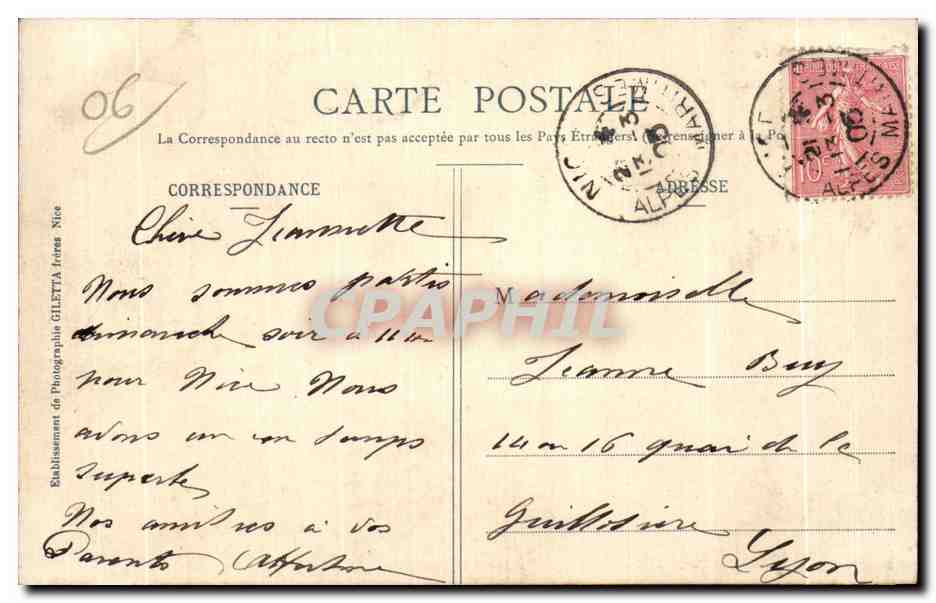 06
CARTE POSTALE
La Correspondance au recto n'est pas acceptée par tous les Pays Étrangers (Se renseigner à la Po
CORRESPONDANCE
ADRESSE
NIC
ALPES MARITIMES
ALPES MARITIMES
10
Chère Jeannette
Nous sommes partis
dimanche soir à 11
pour Nice Nous
avons un temps
superbe
Nos amitiés à vos
Parents
Mademoiselle
Jeanne Buy
14 ou 16 quai de la
Guillotière
Lyon
CPAPHIL
Etablissement de Photographie GILETTA frères Nice